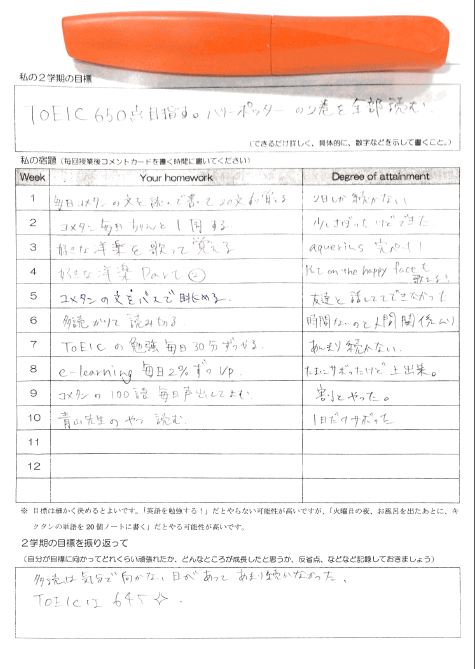 私の2学期の目標
TOEIC 650点目指す。ハリーポッターの2巻を全部読む
(できるだけ詳しく、具体的に、数字などを示して書くこと。)
私の宿題(毎回授業後コメントカードを書く時間に書いてください)
Week Your homework Degree of attainment
1 毎日コメタンの文を読んで書いて20文お覚える 2日しか続かない
2 コメタン毎日ちゃんと1周する 少しさぼったけどできた
3 好きな洋楽を歌って覚える aquerius 完ペキ!
4 好きな洋楽 Part② Put on the happy faceも
5 コメタンの文をバスで眺める。 友達と話しててできなかった
6 多読がりて読み切る 時間ないのと人間関係ムリ
7 TOEICの勉強毎日30分ずつやる。 あんまり続かない。
8 e-learning 毎日2%ずつup. たまにサボったけど上出来。
9 コメタンの100語毎日声出してよむ 割とやった。
10 青山先生のやつ読む 1日だけサボった
11
12
※ 目標は細かく決めるとよいです。「英語を勉強する!」だとやらない可能性が高いですが、「火曜日の夜、お風呂を出たあとに、キ
クタンの単語を20個ノートに書く」だとやる可能性が高いです。
2学期の目標を振り返って
(自分が目標に向かってどれくらい頑張れたか、どんなところが成長したと思うか、反省点、などなど記録しておきましょう)
多読は気分で向かない日があってあまり続かなかった。
TOEICは 645